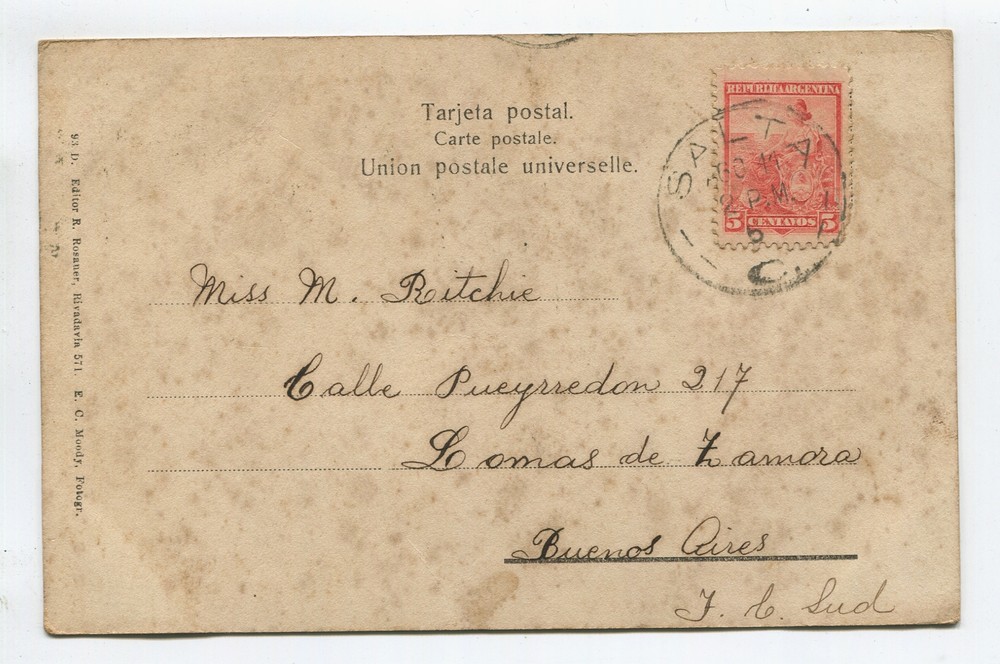 Tarjeta postal.
Carte postale.
Union postale universelle.
REPUBLICA ARGENTINA
5 CENTAVOS 5
SALTA
P.M.
5
Miss M. Ritchie
Calle Pueyrredon 217
Lomas de Zamora
Buenos Aires
F. C. Sud
93 D. Editor R. Rosauer, Rivadavia 571. E. C. Moody, Fotogr.